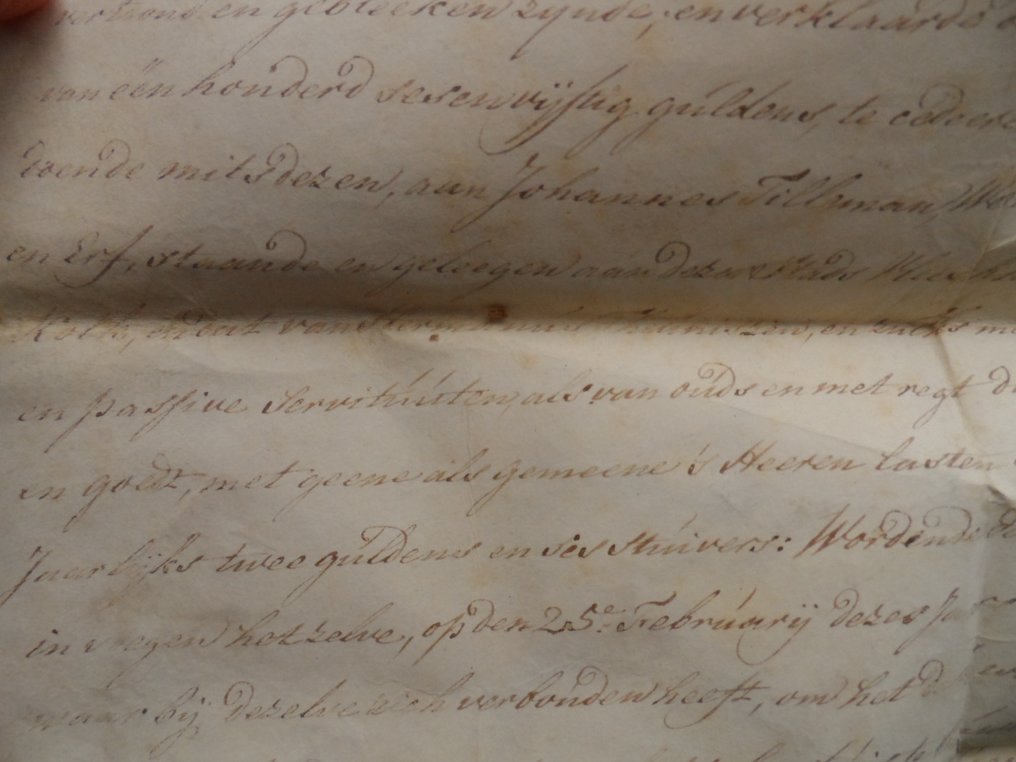 en gebleeken zynde, en verklaarde
van één honderd sesenvijftig guldens, te cedeere
doende mits dezen, aan Johannes Tilleman,
en Erf, staande en geleegen aan dezer stads
van en zulks
en passive servituten, als van ouds en met regt
en goedt, met geene als gemeene 's Heeren lasten
Jaarlijks twee guldens en ses stuivers: Wordende
in voegen hetzelve, op den 25e. Februarij dezes
waar bij dezelve zich verbonden heeft, om het